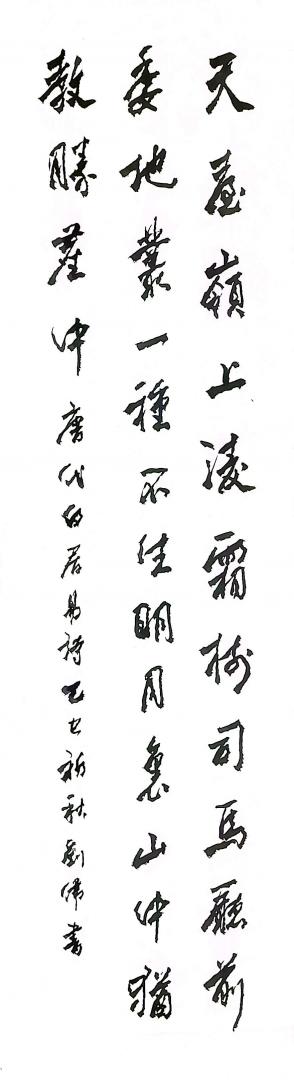 天臺嶺上淩霜樹司馬廳前
委地叢一種不生明月裏山中猶
教勝塵中 唐代白居易詩乙巳初秋劉偉書